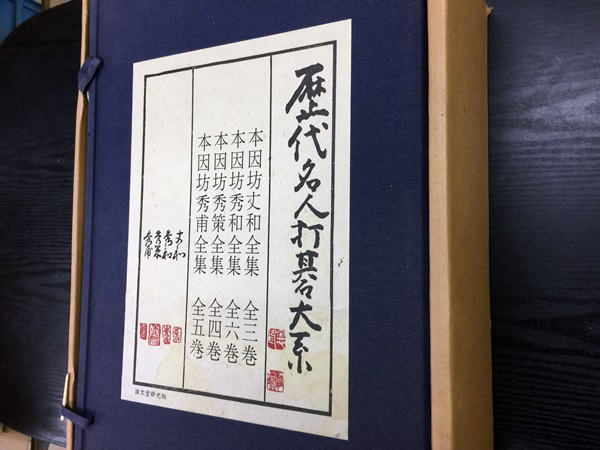 歴代名人打碁大系
本因坊丈和全集 全三巻
本因坊秀和全集 全六巻
本因坊秀策全集 全四巻
本因坊秀甫全集 全五巻
丈和
秀和
秀策
秀甫
誠文堂新光社